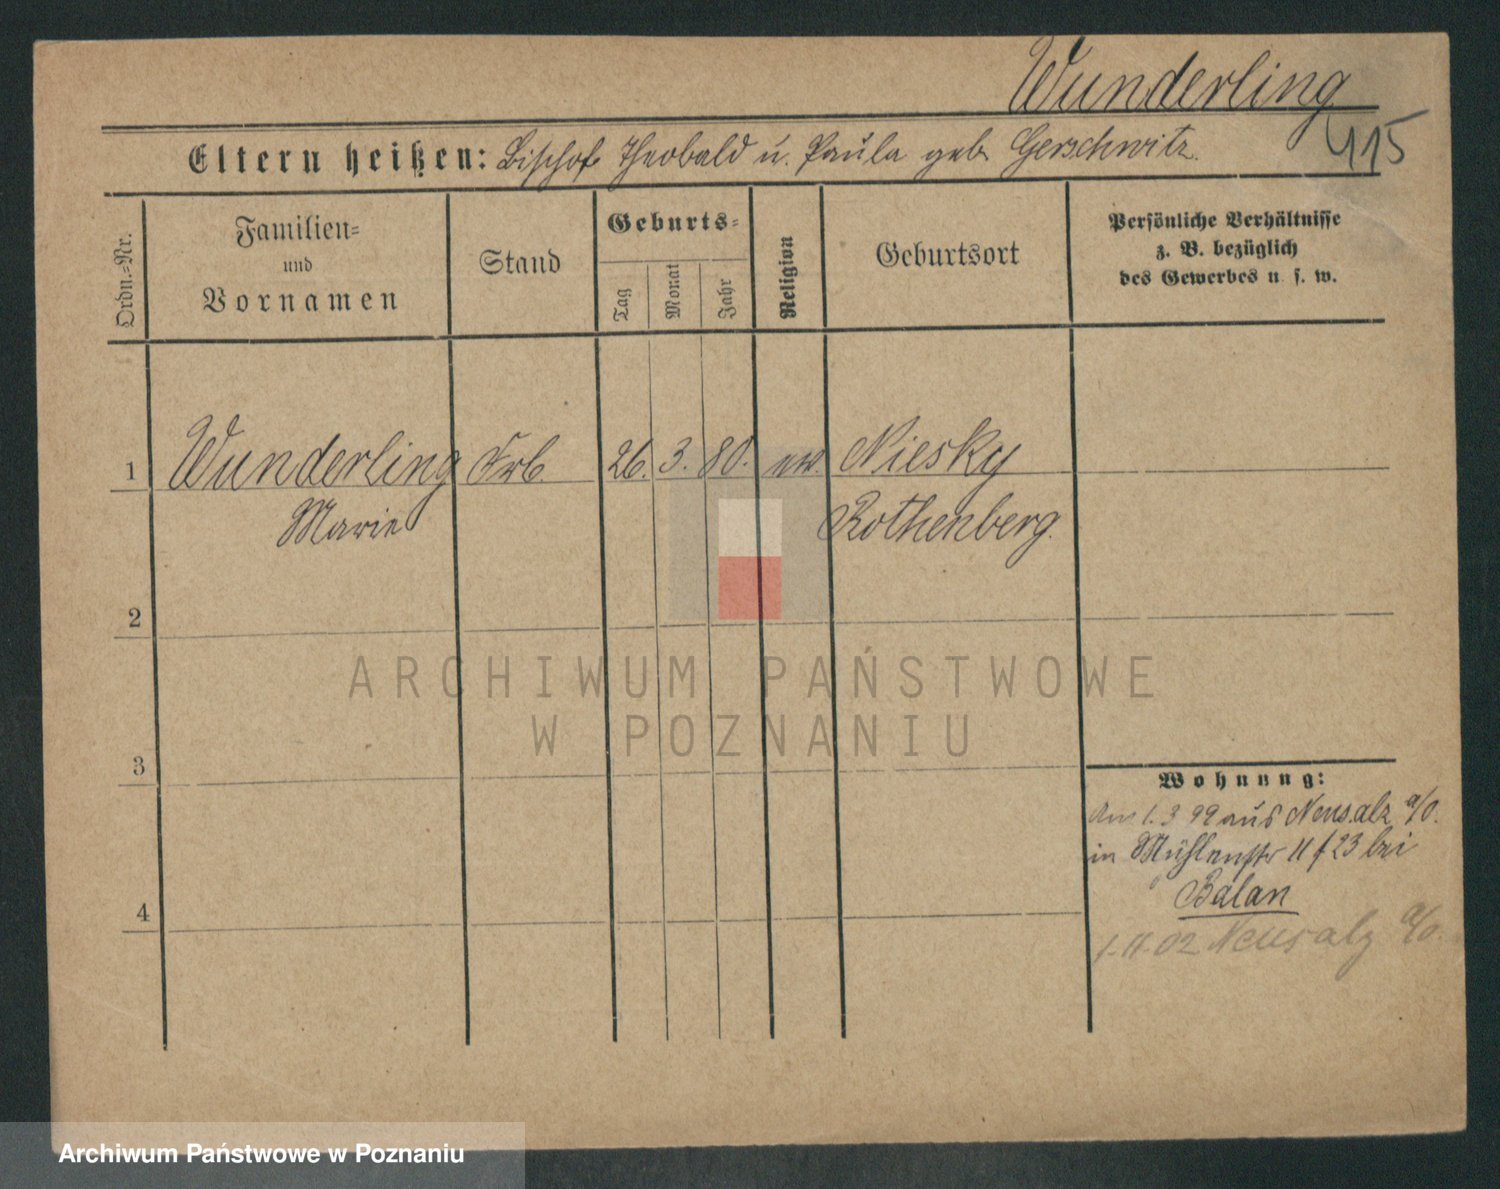 Wunderling
115
Eltern heißen: Bischof Theobald u. Paula geb. Gerschwitz.
Ordn.=Nr.
Familien=
und
Vornamen
Stand
Geburts=
Tag
Monat
Jahr
Religion
Geburtsort
Persönliche Verhältnisse
z. B. bezüglich
des Gewerbes u. s. w.
1 Wunderling 26. 3. 80. ev. Niesky
Marie Rothenberg.
2
3
4
Wohnung:
Am 1. 3 99 aus Neusalz a/O.
in Mühlenstr 11 f 23 bei
Balan
1.11.02 Neusalz a/O.
ARCHIWUM PAŃSTWOWE
W POZNANIU
Archiwum Państwowe w Poznaniu